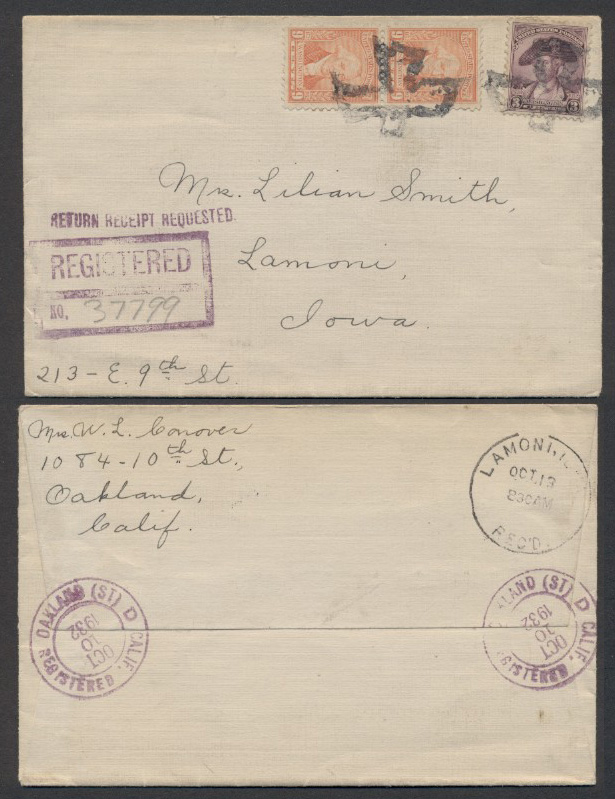 6 6 3 3
Mrs. Lilian Smith,
RETURN RECEIPT REQUESTED.
REGISTERED
NO. 37799
Lamoni,
Iowa.
213 - E. 9th St.
Mrs. W. L. Conover
1084 - 10th St.,
Oakland,
Calif.
LAMONI,
OCT 19
830AM
REC'D.
OAKLAND (ST) D CALIF.
OCT
10
1932
REGISTERED
OAKLAND (ST) D CALIF.
OCT
10
1932
REGISTERED